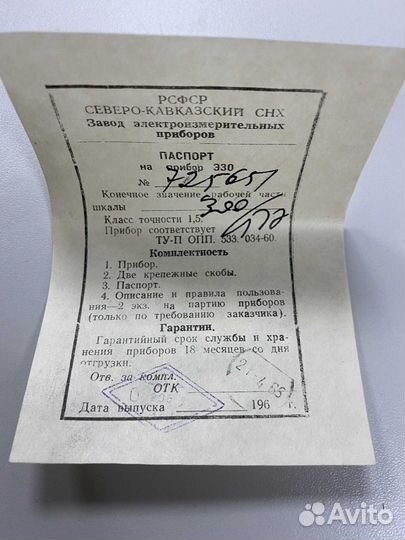 РСФСР
СЕВЕРО-КАВКАЗСКИЙ СНХ
Завод электроизмерительных
приборов
ПАСПОРТ
на прибор Э30
№ 725651
Конечное значение рабочей части
шкалы 300
Класс точности 1,5.
Прибор соответствует
ТУ-П ОПП. 533. 034-60.
Комплектность
1. Прибор.
2. Две крепежные скобы.
3. Паспорт.
4. Описание и правила пользова-
ния—2 экз. на партию приборов
(только по требованию заказчика).
Гарантии.
Гарантийный срок службы и хра-
нения приборов 18 месяцев со дня
отгрузки.
Отв. за компл.
ОТК
Дата выпуска 196 г.
Avito